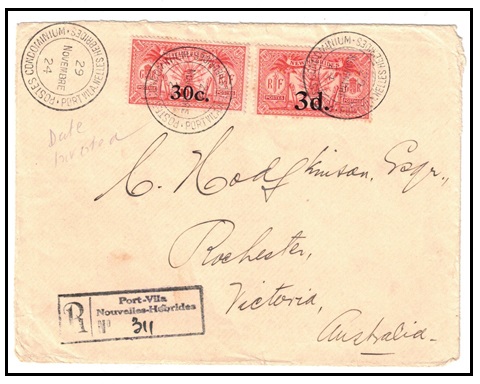 POSTES CONDOMINIUM · PORT VILA NELLES HEBRIDES ·
29
NOVEMBRE
24
30c.
RF
3d.
RF
Date
inverted
C. Hodgkinson, Esqr.,
Rochester,
Victoria,
Australia.
R
Port-Vila
Nouvelles-Hébrides
N° 311